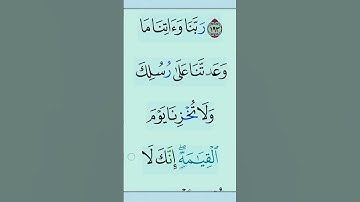 ﴿١٩٣﴾ رَبَّنَا وَءَاتِنَا مَا
وَعَدتَّنَا عَلَىٰ رُسُلِكَ
وَلَا تُخْزِنَا يَوْمَ
ٱلْقِيَٰمَةِۖ إِنَّكَ لَا